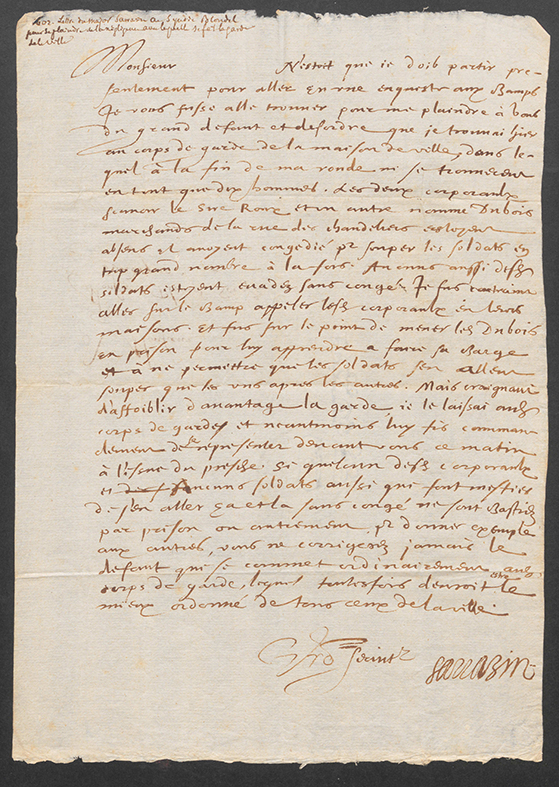 1602. Lettre du major Sarrasin au Syndic Blondel
pour se plaindre de la négligence avec laquelle se fait la garde
de la ville
Monsieur N'estoit que ie doib partir pre-
sentement pour aller en une enqueste aux Bamps
Je vous fusse allé trouuer pour me plaindre à Vous
Du grand defaut et desordre que je trouuai hier
au corps de garde de la maison de ville, dans le-
quel à la fin de ma ronde ne se trouuerent
en tout que dix hommes. Les deux corporaux
scauoir le Sire Roux et un autre nommé Dubois
marchands de la rue des chandeliers estoyent
absens et auoyent congedié pr souper les soldats en
trop grand nombre à la fois. Aucuns aussi desdts
soldats estoyent euadez sans congé. Je fus contraint
aller sur le Bamp appeler lesdts corporaux en leurs
maisons. Et fus sur le point de mener ledt Dubois
en prison pour luy apprendre a faire sa Barge
et à ne permettre que les soldats s'en allent
souper que les uns apres les autres. Mais craignant
d'affoiblir d'auantage la garde ie le laissai audt
corps de garde et neantmoins luy fis comman-
dement de se representer deuant vous ce matin
à l'issue du presche. Si quelcun desdts corporaux
et aucuns soldats aussi qui font mestier
de s'en aller ça et la sans congé ne sont Bastiez
par prison ou autrement, pr donner exemple
aux autres, vous ne corrigerez jamais le
defaut qui se commet ordinairement audt
corps de garde, lequel toutesfois deuroit estre le
mieux ordonné de tous ceux de la ville.
Sarrazin